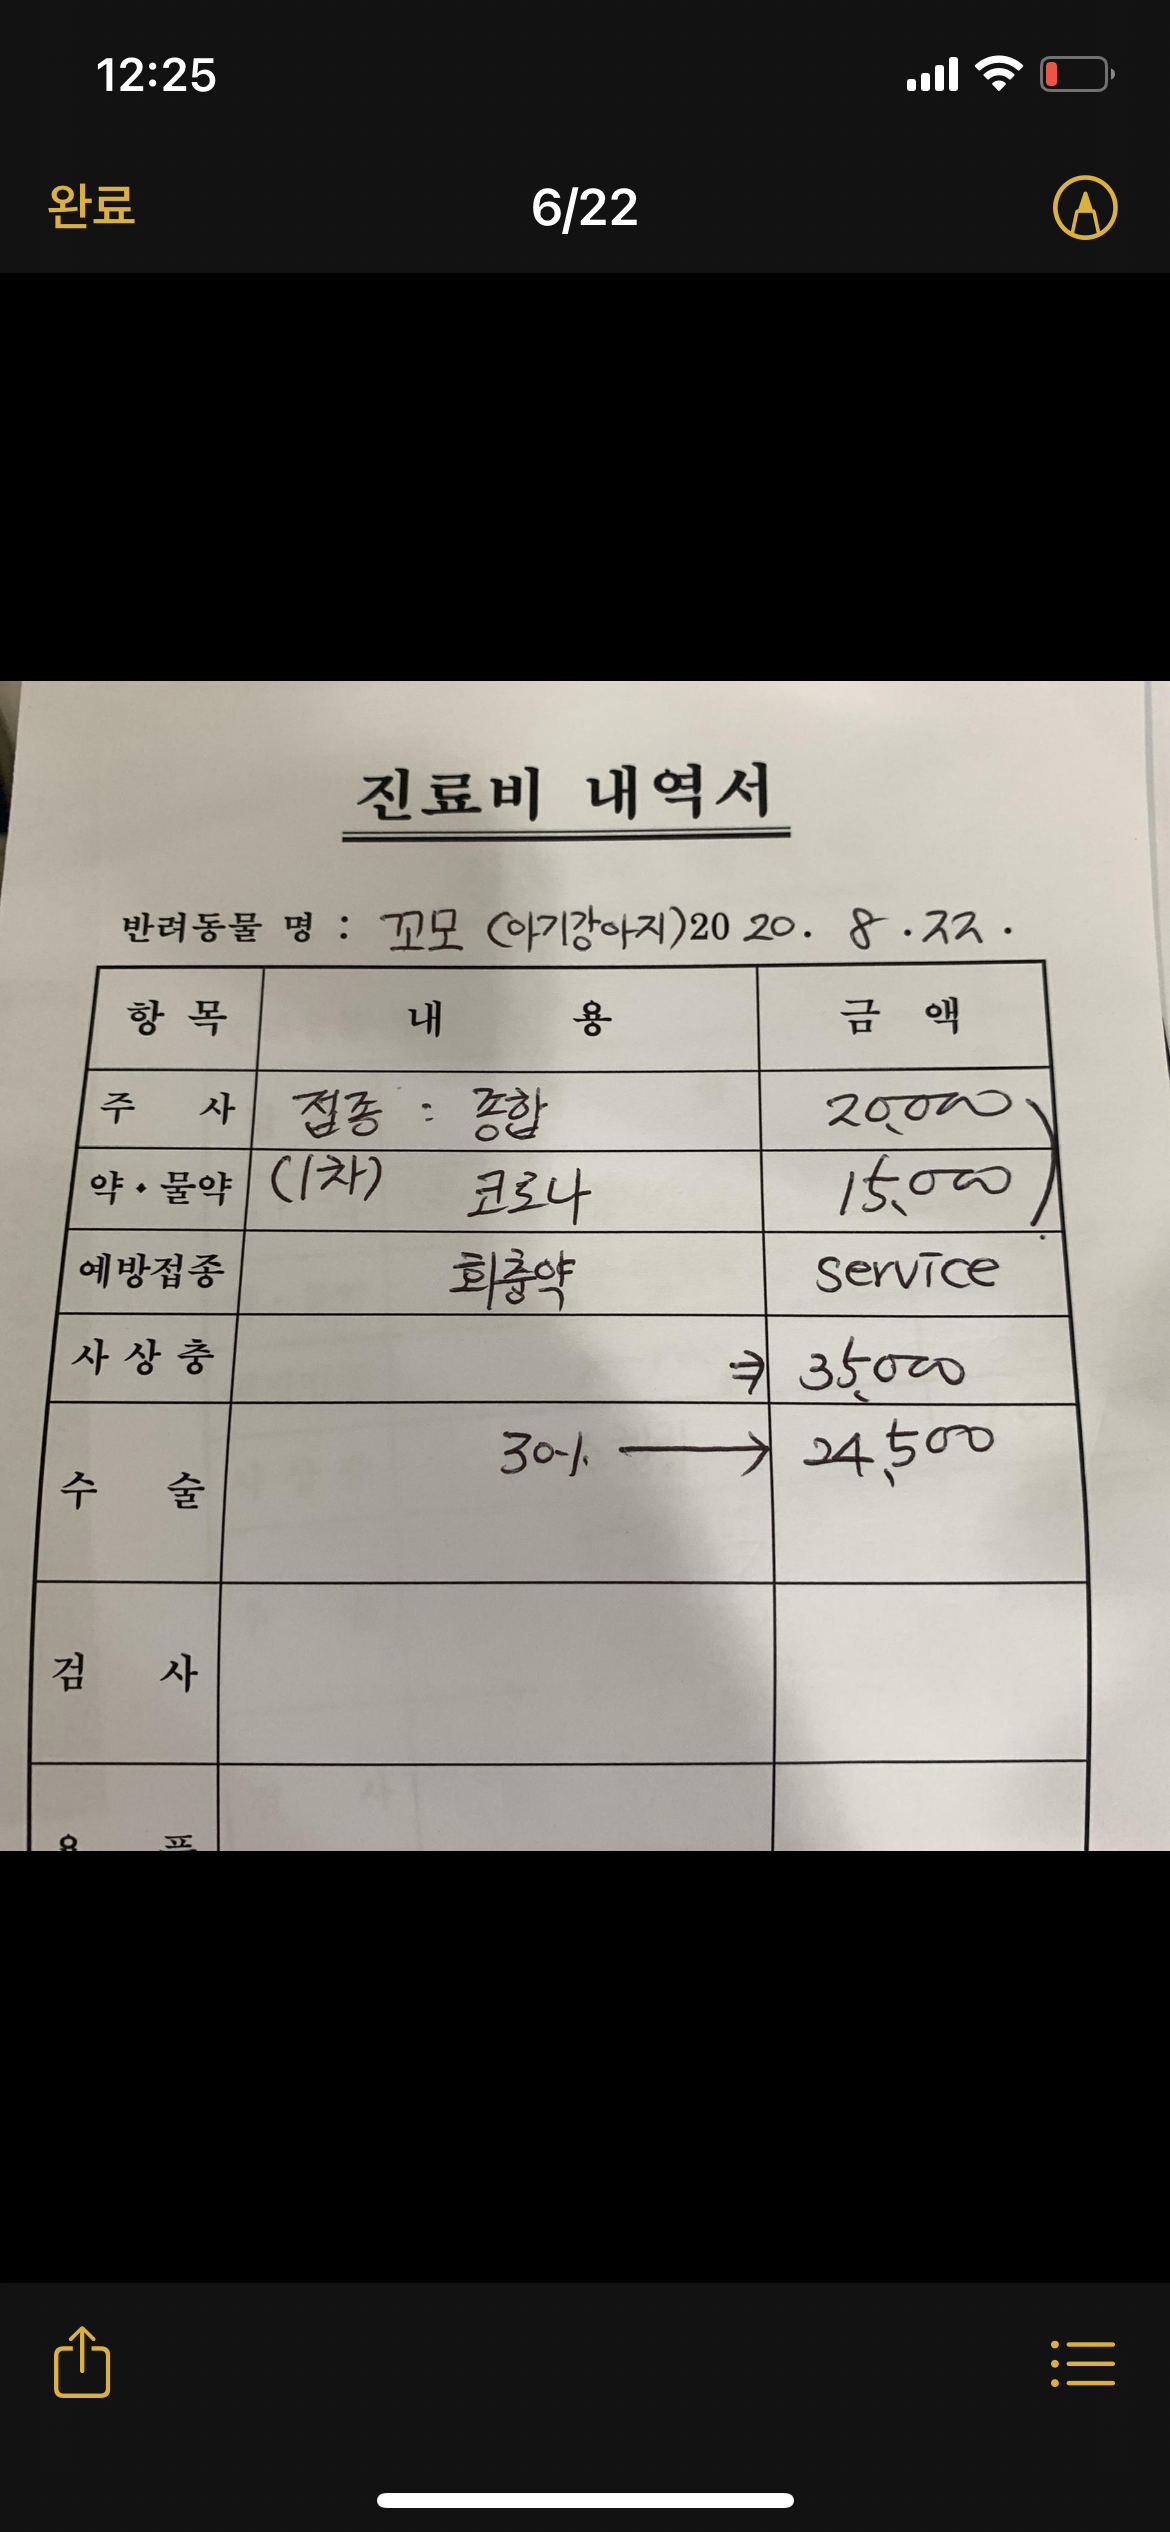 12:25
완료 6/22
진료비 내역서
반려동물 명 : 꼬모 (아기강아지) 2020. 8. 22.
항 목 내 용 금 액
주 사 접종 : 종합 20,000
약·물약 (1차) 코로나 15,000
예방접종 회충약 service
사상충 ⇒ 35,000
수 술 30% → 24,500
검 사
용 품